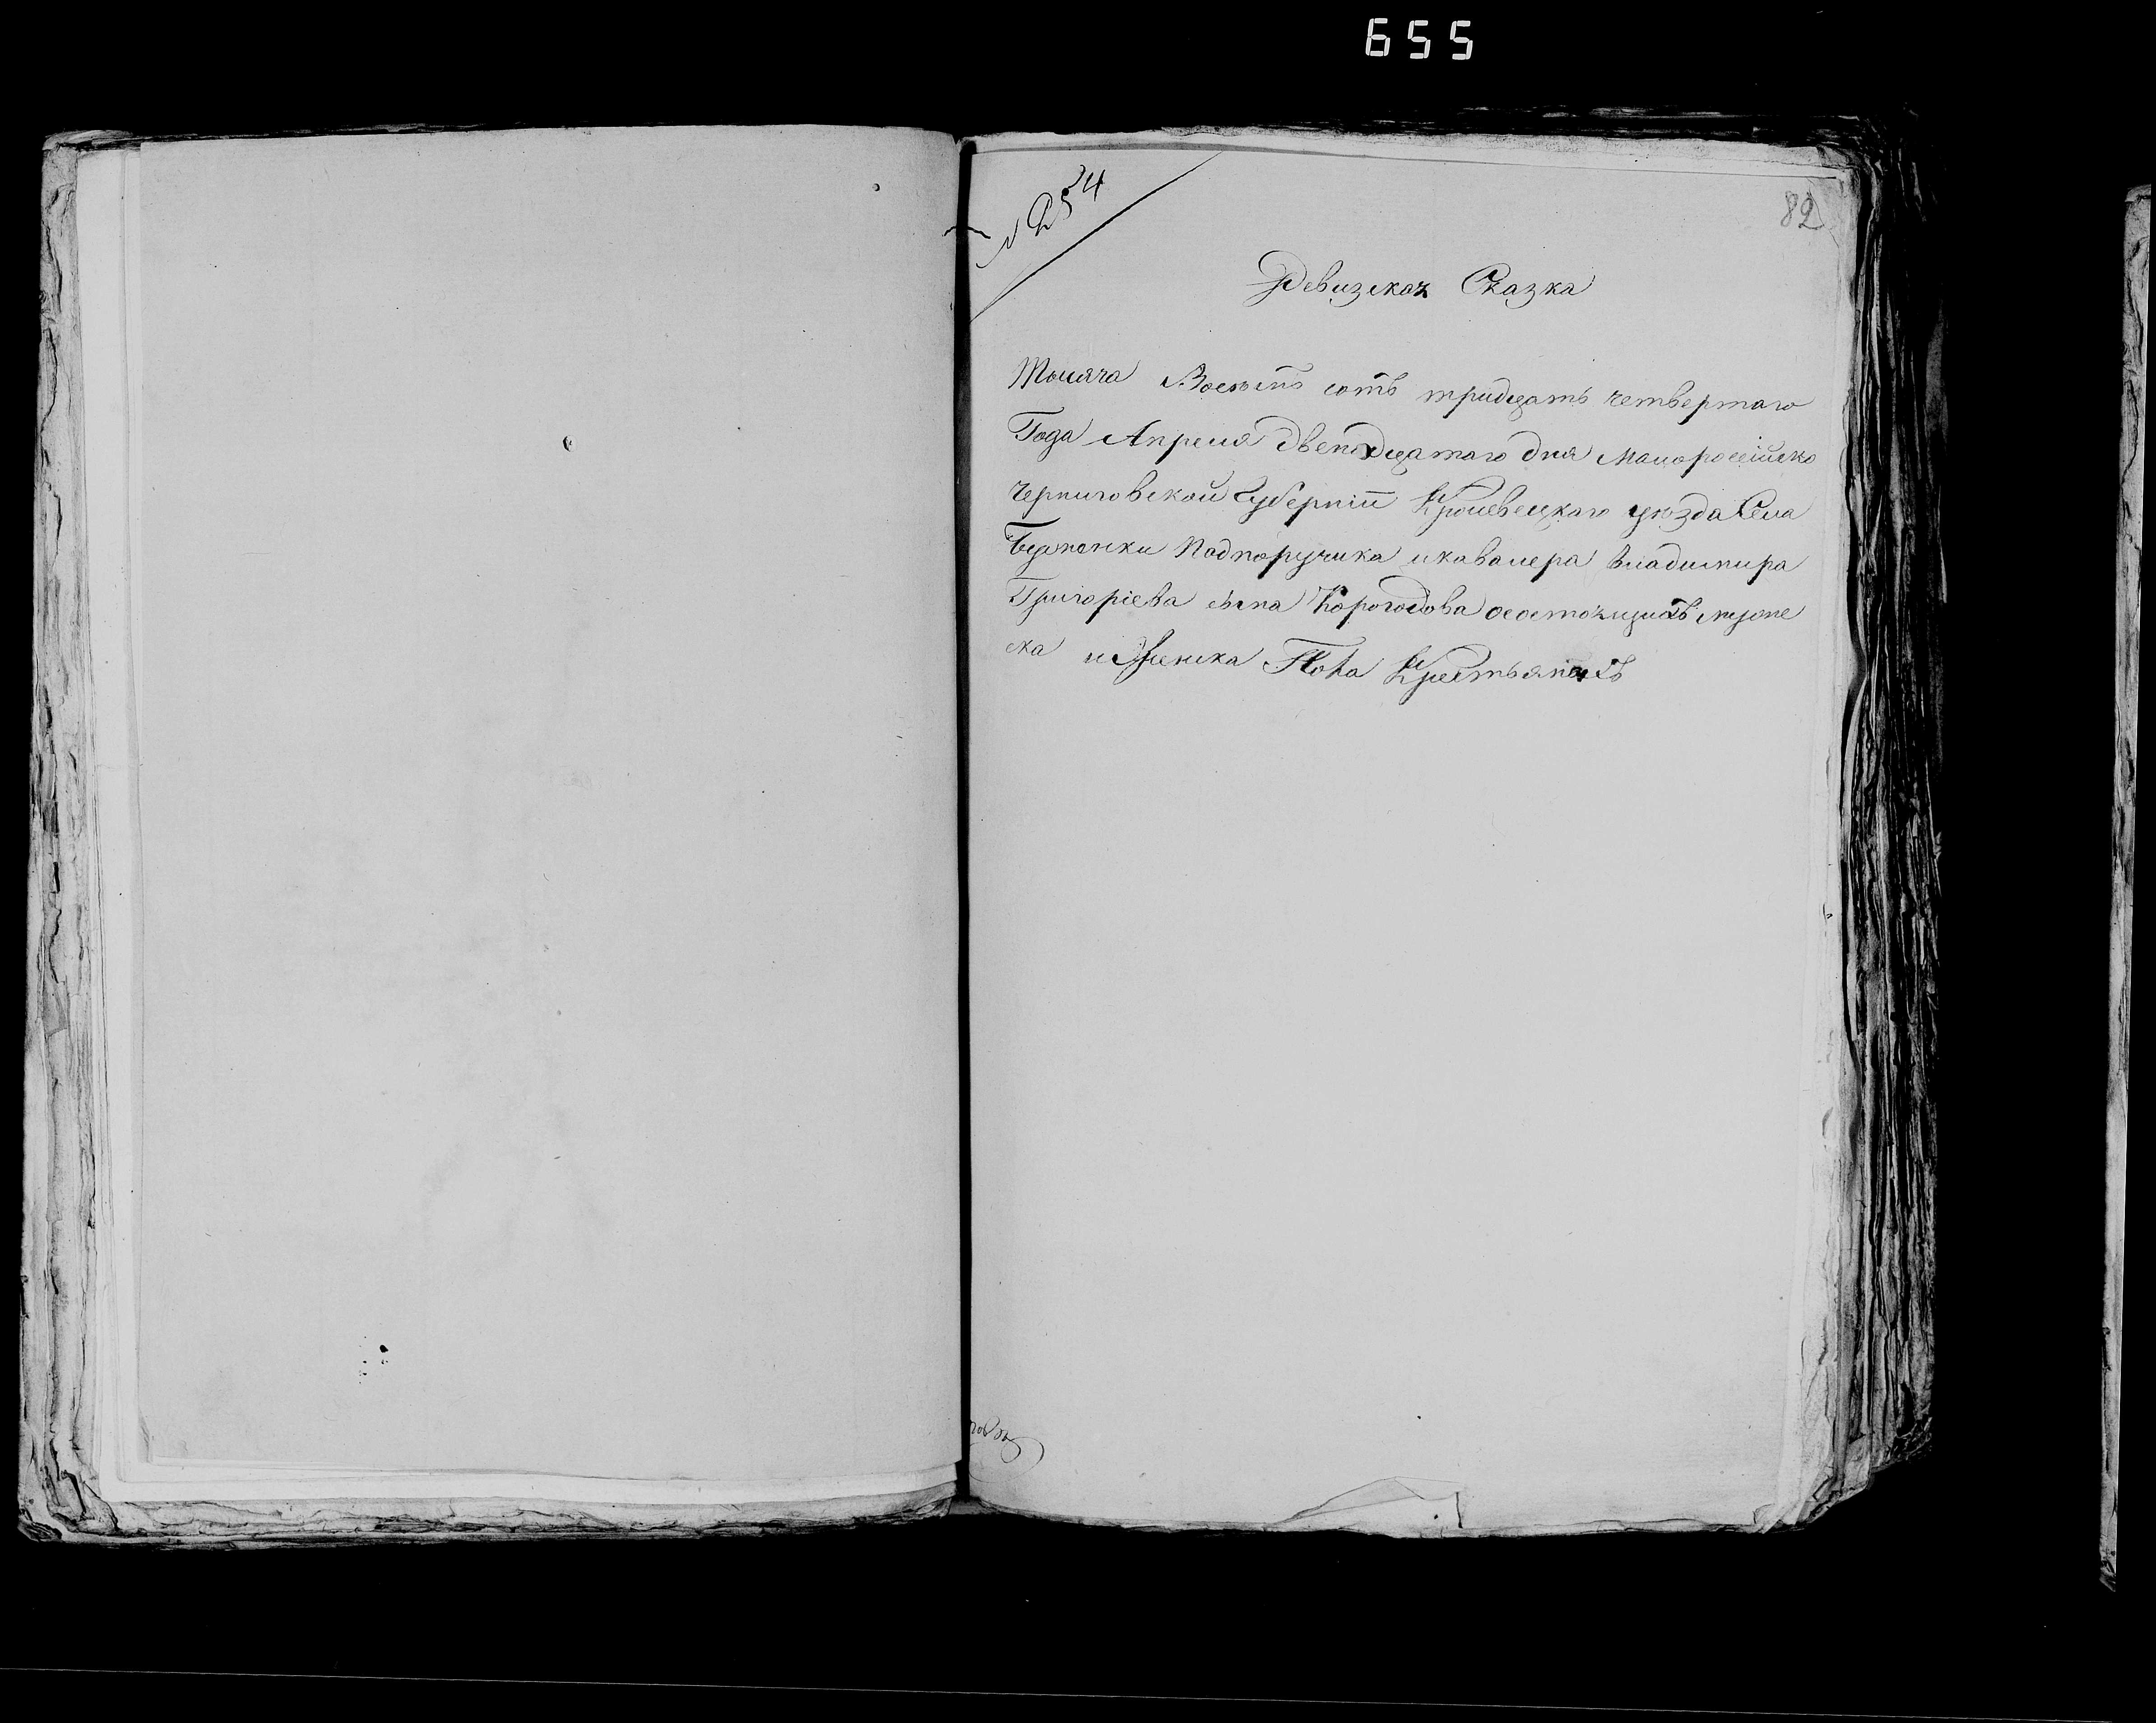 655
82
№ 254
Ревизская Сказка
Тысяча Восемъ сотъ тридцать четвертаго
Года Апреля двенадцатого дня Малороссійско
Черниговской Губерніи Кролевецкаго уезда Села
Подпоручика икавалера Владимира
Григоріева сына Корогодова осостоящихъ мужеме
ска и Женска Пола Крестьянахъ